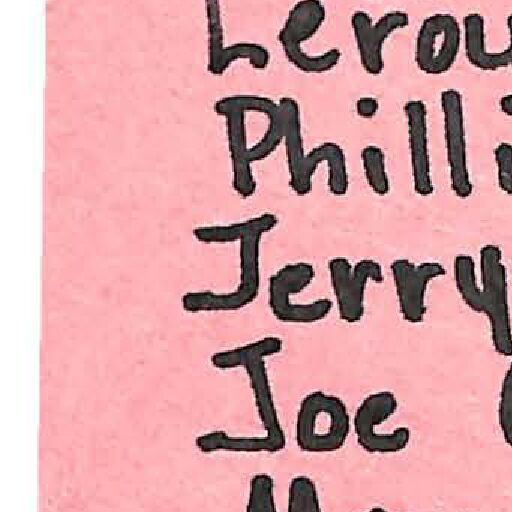 Lerou
Philli
Jerry
Joe